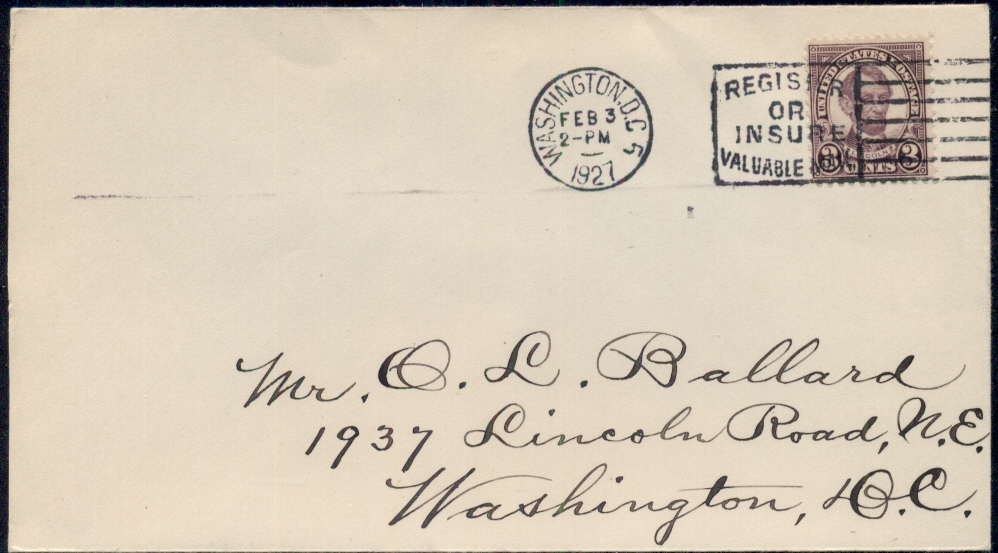 WASHINGTON, D.C. 5
FEB 3
2-PM
1927
REGISTER
OR
INSURE
VALUABLE
UNITED STATES POSTAGE
LINCOLN
3 CENTS 3
Mr. O. L. Ballard
1937 Lincoln Road, N.E.
Washington, D.C.